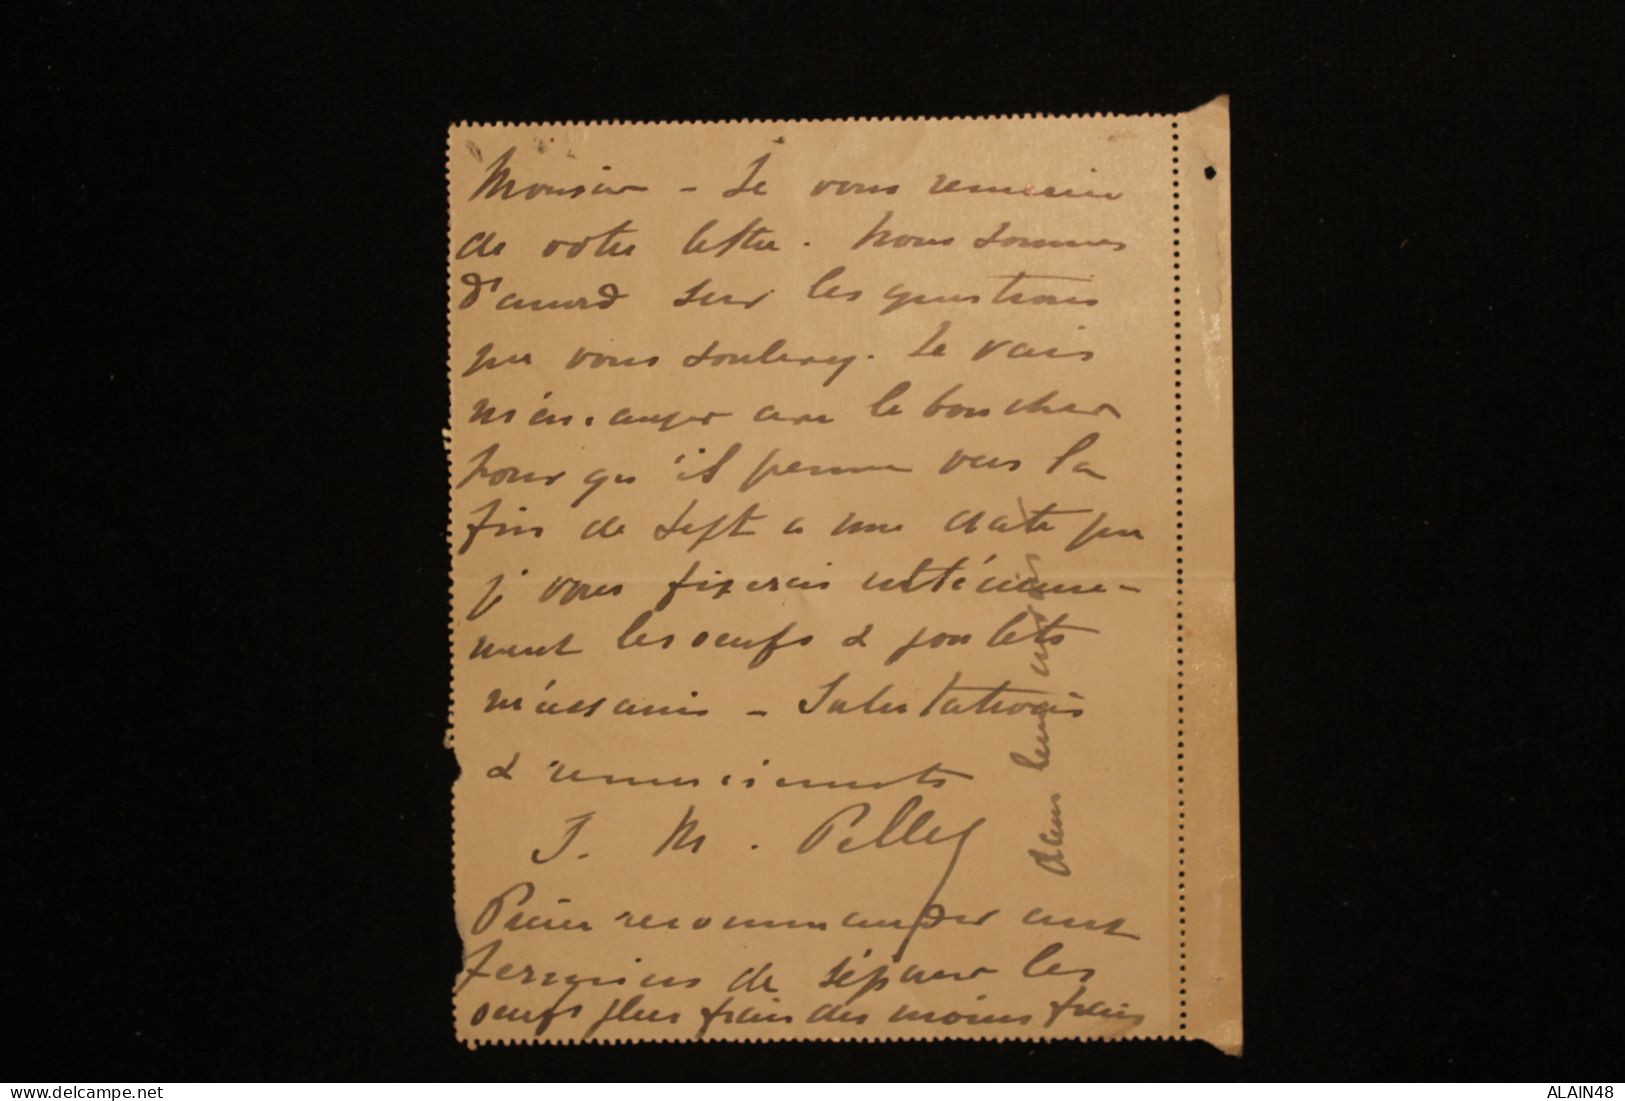 Monsieur - Je vous remercie
de votre lettre. Nous sommes
d'accord sur les questions
que vous soulevez. Je vais
m'arranger avec le boucher
pour qu'il prenne vers la
fin de Sept a une date que
je vous fixerai ultérieure-
ment les oeufs & poulets
nécessaires - Salutations
& remerciements
J. M. Pelley
Prière recommander aux
fermiers de séparer les
oeufs plus frais des moins frais
dans leurs
delcampe.net
ALAIN48